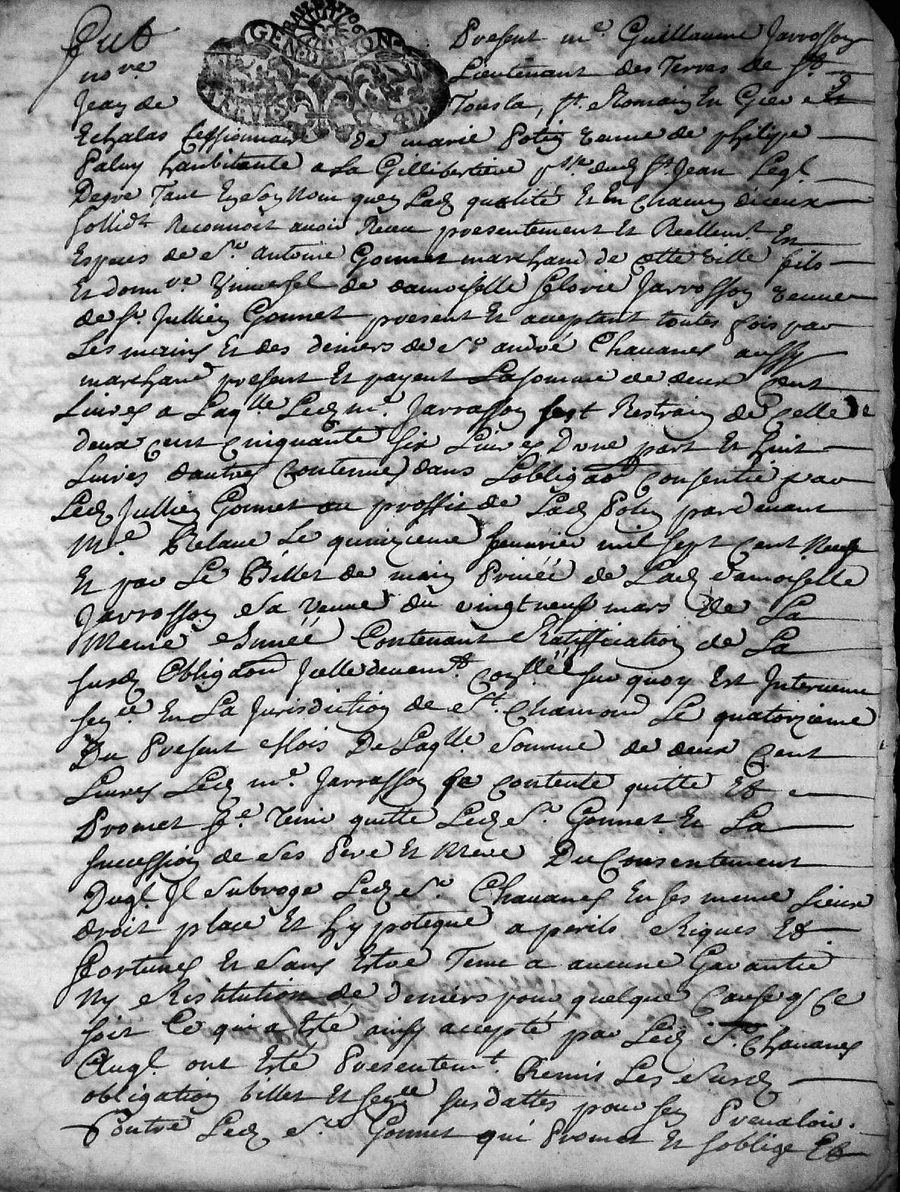 Fut Present me. Guillaume Jarrosson
nore Lieutenant des Terres de St.
Jean de Tousla, St. Romain En Gier et
Echalas Cessionnaire de marie Potin veuve de philipe
Paluy habitante a la Gillibertiere psse. dud St. Jean
Tant En son Nom quen Lad qualité et En chacun diceux
sollidt Reconnoit avoir Receu presentement Et Reellemt En
Espices de Sr. antoine Gonnet marchand de cette ville fils
Et donnre. de damoiselle Jarrosson veuve
de Sr. Jullien Gonnet present Et acceptant toutes fois par
Les mains Et des deniers de Sr. andré Chavanes aussy
marchand present Et payent La somme de deux Cent
Livres a Laqlle Led me. Jarrosson sest Restraint de Celle de
deux cent Cinquante six Livres Dune part Et huit
Livres dautre Contenues dans Lobligaon Consentie par
Led Jullien Gonnet au proffit de Lad Potin pardevant
Me. le quinzieme feuvrier mil sept Cent Neuf
Et par Le Billet de main Privée de Lad Damoiselle
Jarrosson sa veuve du vingt neuf mars de La
Meme Année Contenant Ratiffication de La
susd Obligaon Icelle devenmt Conllée sur quoy Est Intervenue
sence En La Jurisdiction de St. Chamond Le quatorzieme
Du Present Mois De Laqlle Somme de deux Cent
Livres Led me. Jarrosson se Contente quitte Et
Promet fe. Tenir quitte Led Sr. Gonnet En La
succession de Ses Pere Et Mere Du Consentement
Duql Il Subroge Led Sr. Chavanes En ses meme Lieux
droit place Et hypoteque a perils Risques Et
fortunes Et Sans Estre Tenu a aucune Garantie
Ny Restitution de deniers pour quelque Cause q Ce
soit Ce qui a Eté ainsy accepté par Led Sr. Chavanes
Auql ont Esté Presentemt. Remis Les Susd
obligation billet Et sence susdattes pour sen Prevaloir
Contre Led Sr. Gonnet qui Promet Et soblige Et